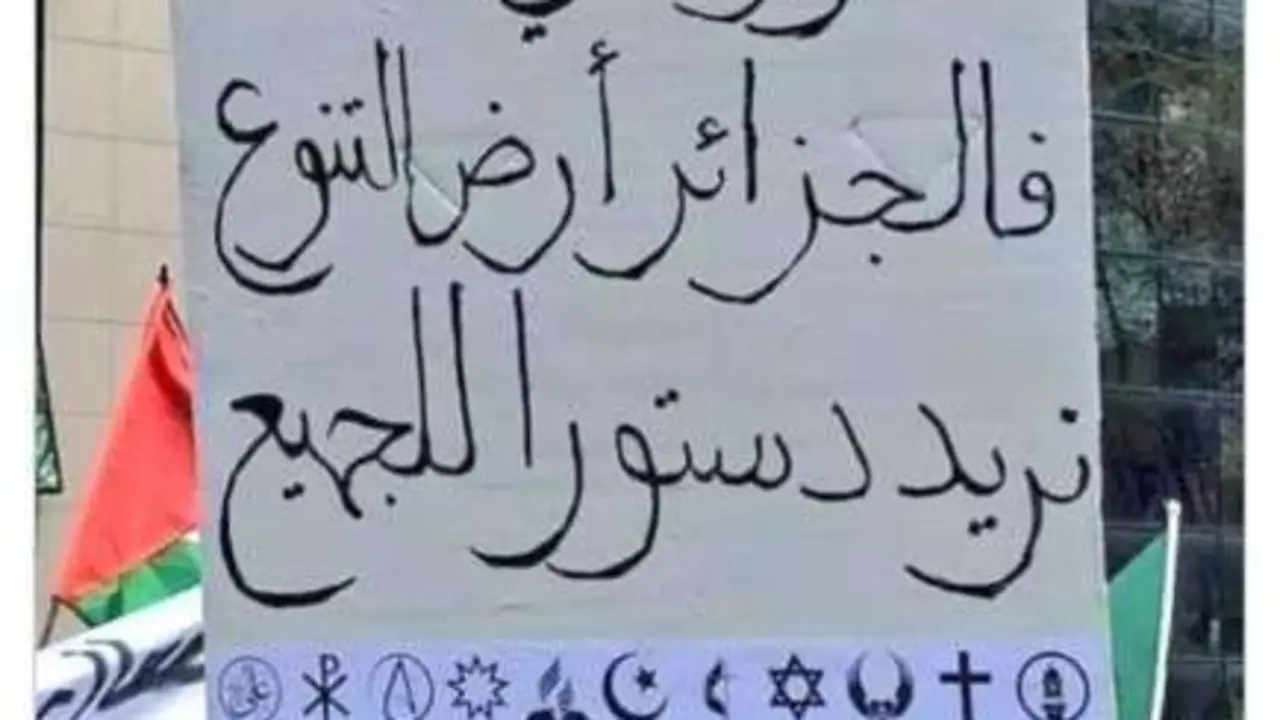 فالجزائر أرض التنوع
نريد دستورا للجميع